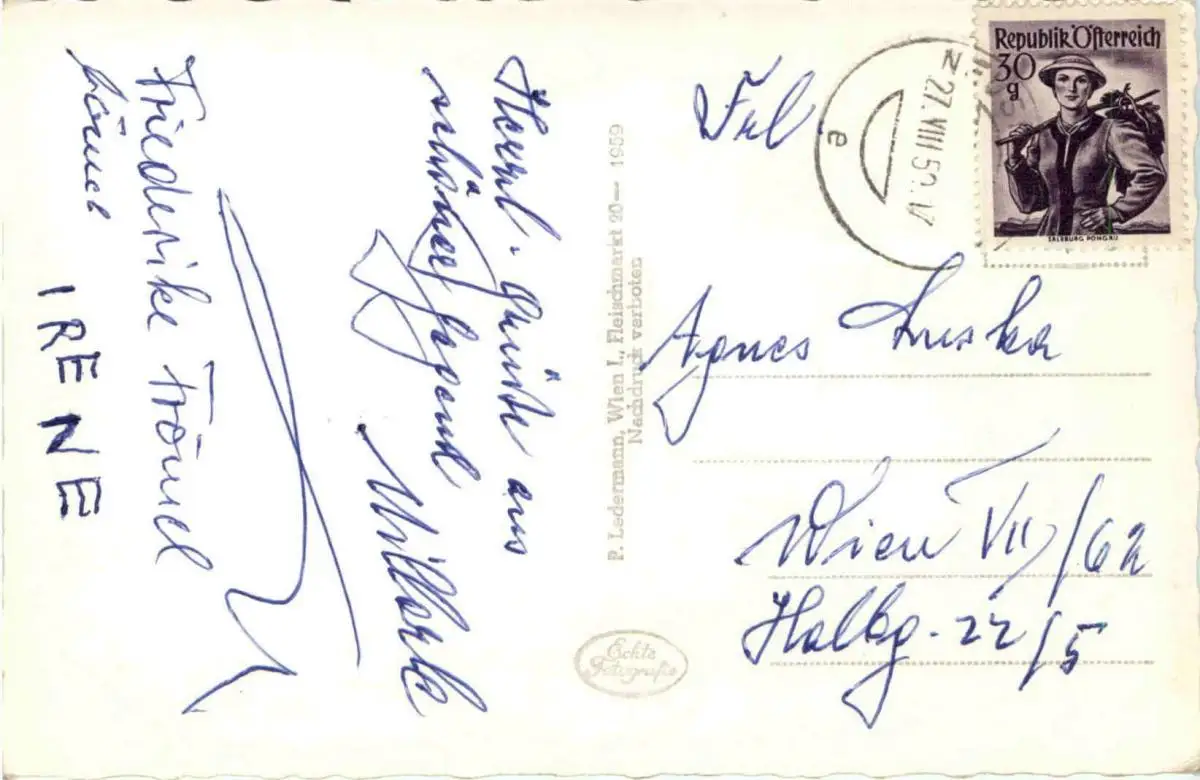 Herzl. Grüße aus
schöner Gegend
Friederike Frömel
IRENE
P. Ledermann, Wien I., Fleischmarkt 20 — 1959
Nachdruck verboten
Echte
Fotografie
Republik Österreich
30
g
SALZBURG PONGAU
27.VIII.59.17
e
Frl
Agnes Luska
Wien VII/62
Halbg. 22/5